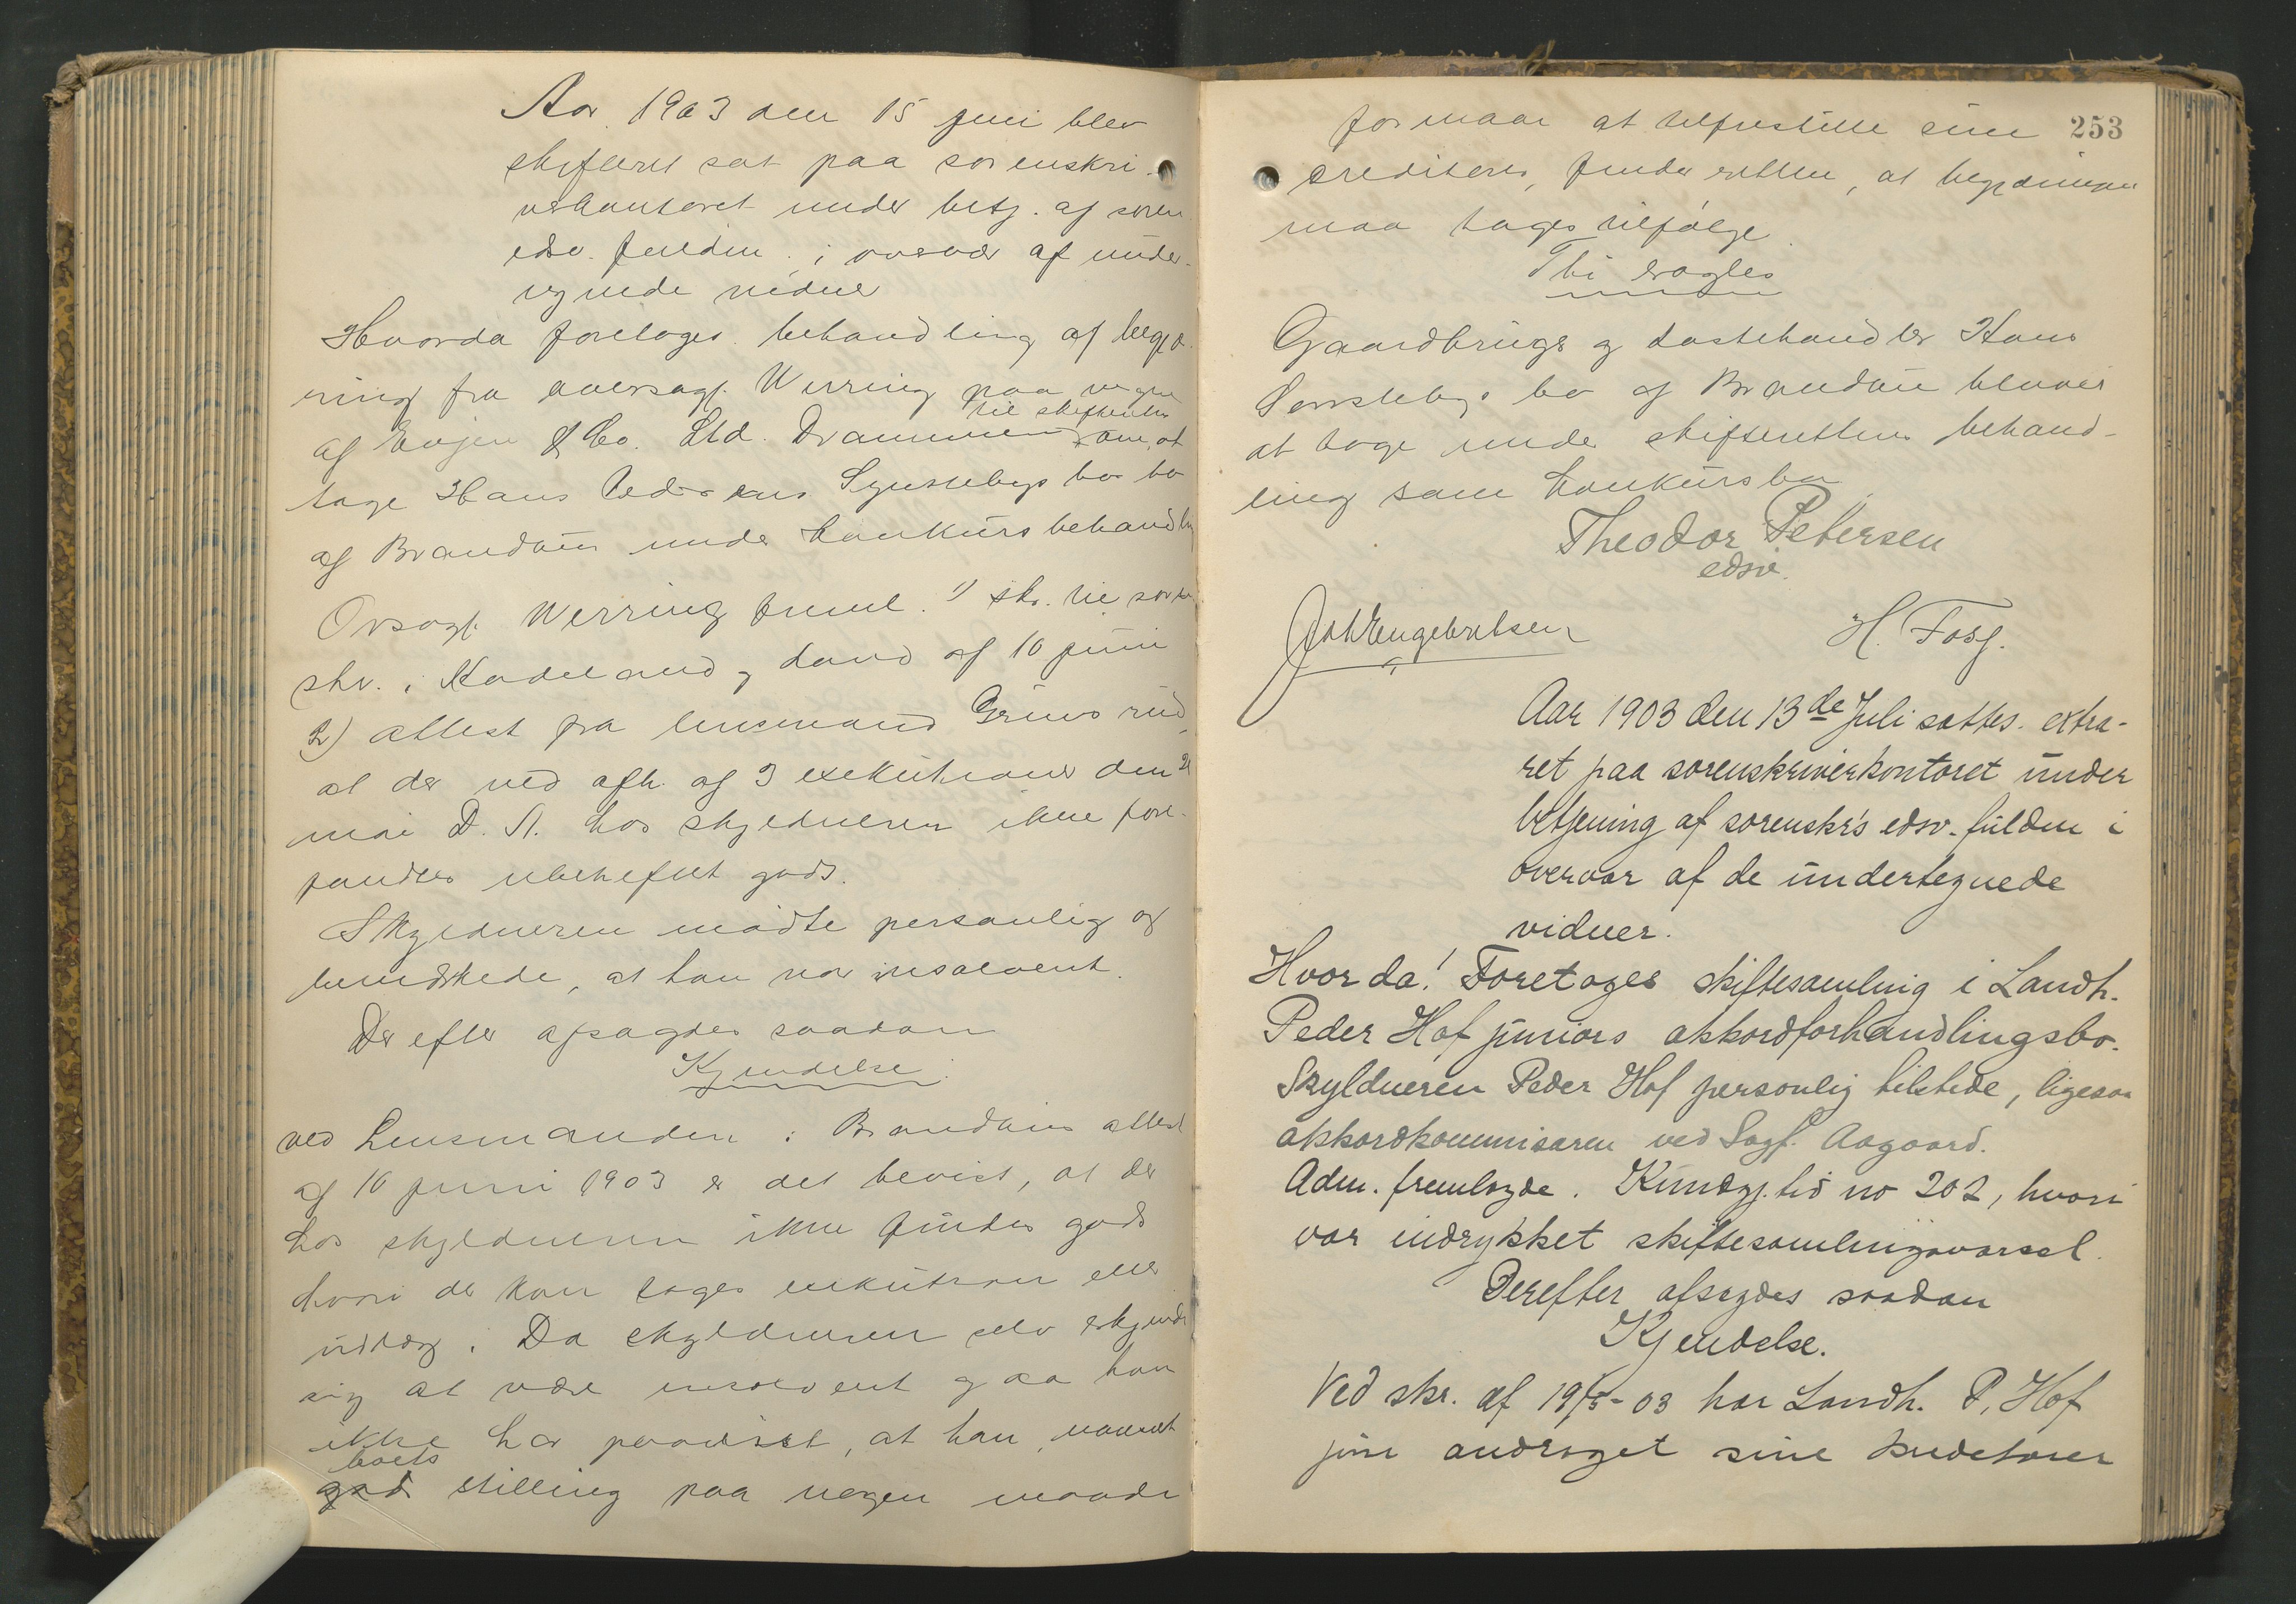 Aar 1903 den 15 juni blev
skifteret sat paa sorenskri-
verkontoret under betj. af soren
edsv. fuldm. i overvær af under-
tegnede vidner
Hvorda foretoges behandling af begjæ-
ring fra oversagf. Werring paa vegne
af Evjen & Co. Ltd. Drammen til skifteretten om, at
tage Hans Pedersens bo
af Brandbu under konkursbehandling
Ovsagf. Werring freml. 1) skr. til soren
skr. i Hadeland, dand af 10 juni
2) attest fra lensmand
at der ved afh. af 3 exekutioner den 21
mai D. A. hos skyldneren ikke fore-
fandtes ubeheftet gods.
Skyldneren mødte personlig og
bemærkede, at han var insolvent.
Derefter afsagdes saadan
Kjendelse.
Ved Lensmanden i Brandbus attest
af 10 juni 1903 er det bevist, at der
hos skyldneren ikke findes gods
hvori der kan tages exekution eller
udlæg. Da skyldneren selv erkjender
sig at være insolvent og da han
ikke har paavist, at han, uanseet
boets stilling paa nogen maade
253
formaar at tilfredsstille sine
creditorer, finder retten, at begjæringen
maa tages tilfølge.
Thi eragtes
Gaardbruger og hestehandler Hans
bo af Brandbu bliver
at tage under skifterettens behand-
ling som konkursbo.
Theodor Petersen
edsv.
Joh Engebretsen H. Fosf.
Aar 1903 den 13de Juli sattes extra-
ret paa sorenskriverkontoret under
betjening af sorenskr's edsv. fuldm i
overvær af de undertegnede
vidner.
Hvorda! Foretoges skiftesamling i Landh.
Peder Hof juniors akkordforhandlingsbo.
Skyldneren Peder Hof personlig tilstede, ligesaa
akkordkommisæren ved Sagf. Aagaard.
Adm. fremlagde. Kundgj.tid no 202, hvori
var indrykket skiftesamlingsvarsel.
Derefter afsagdes saadan
Kjendelse.
Ved skr. af 19/5-03 har Landh. P. Hof
jun andraget sine kreditorer